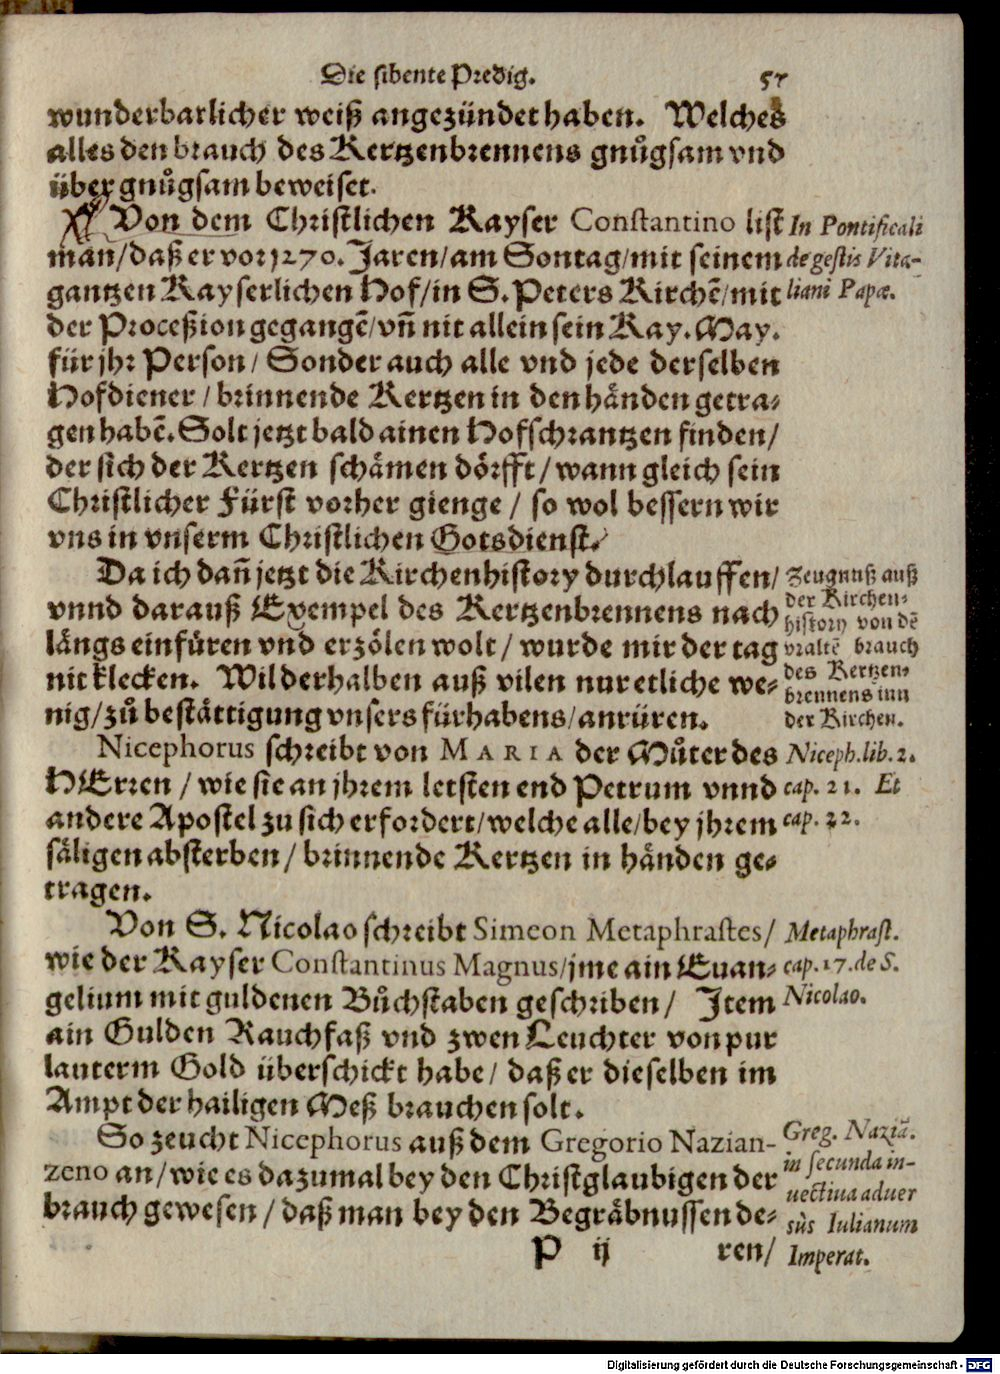 Die sibente Predig. 57
wunderbarlicher weiß angezündet haben. Welches
alles den brauch des Kertzenbrennens gnůgsam vnd
über gnůgsam beweiset.
Von dem Christlichen Kayser Constantino list
man/daß er vor 1270. Jaren/am Sontag/mit seinem
gantzen Kayserlichen Hof/in S. Peters Kirchẽ/mit
der Proceßion gegangẽ/vñ nit allein sein Kay. May.
für jhr Person/ Sonder auch alle vnd jede derselben
Hofdiener/ brinnende Kertzen in den händen getra-
gen habẽ. Solt jetzt bald ainen Hofschrantzen finden/
der sich der Kertzen schämen dörfft/wann gleich sein
Christlicher Fürst vorher gienge/ so wol bessern wir
vns in vnserm Christlichen Gotsdienst.
In Pontificali
de gestis Vita-
liani Papæ.
Da ich dañ jetzt die Kirchenhistory durchlauffen/
vnnd darauß Exempel des Kertzenbrennens nach
längs einfüren vnd erzölen wolt/ wurde mir der tag
nit klecken. Wil derhalben auß vilen nur etliche we-
nig/zů bestättigung vnsers fürhabens/anrüren.
Zeugnuß auß
der Kirchen-
history von dẽ
vraltẽ brauch
des Kertzen-
brennens inn
der Kirchen.
Nicephorus schreibt von MARIA der Můter des
HErren/ wie sie an jhrem letsten end Petrum vnnd
andere Apostel zu sich erfordert/welche alle/bey jhrem
säligen absterben/ brinnende Kertzen in händen ge-
tragen.
Niceph. lib. 2.
cap. 21. Et
cap. 22.
Von S. Nicolao schreibt Simeon Metaphrastes/
wie der Kayser Constantinus Magnus/jme ain Euan-
gelium mit guldenen Bůchstaben geschriben/ Item
ain Gulden Rauchfaß vnd zwen Leuchter von pur
lauterm Gold überschickt habe/ daß er dieselben im
Ampt der hailigen Meß brauchen solt.
Metaphrast.
cap. 17. de S.
Nicolao.
So zeucht Nicephorus auß dem Gregorio Nazian-
zeno an/wie es dazumal bey den Christglaubigen der
brauch gewesen/ daß man bey den Begräbnussen de-
Greg. Naziã.
in secunda in-
uectiua aduer
sùs Iulianum
Imperat.
P ij ren/
Digitalisierung gefördert durch die Deutsche Forschungsgemeinschaft - DFG